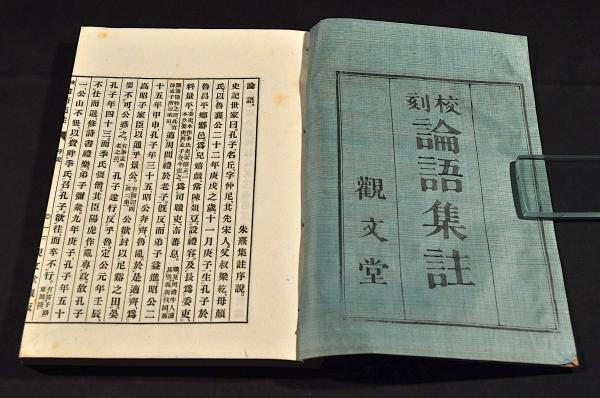 校刻
論語集註
觀文堂
論語。
朱熹集註序說。
史記世家曰孔子名丘字仲尼其先宋人父叔梁紇母顏
氏以魯襄公二十二年庚戌之歲十一月庚子生孔子於
魯昌平鄉郰邑爲兒嬉戲常陳俎豆設禮容及長爲委吏
料量平爲司職吏畜蕃息
適周問禮於老子既反而弟子益進昭公二
十五年甲申孔子年三十五昭公奔齊魯亂於是適齊爲
高昭子家臣以通乎景公公欲封以尼谿之田晏
嬰不可公惑之孔子遂行反乎魯定公元年壬辰
孔子年四十三而季氏強僭其臣陽虎作亂專政故孔子
不仕而退修詩書禮樂弟子彌衆九年庚子孔子年五十
一公山不狃以費畔季氏召孔子欲往而卒不行